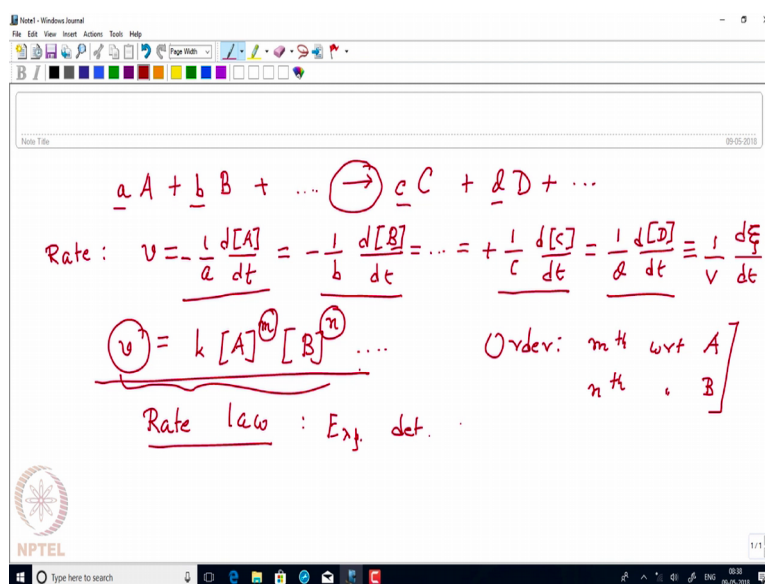 Note1 - Windows Journal
File Edit View Insert Actions Tools Help
Page Width
B I
Note Title
09-05-2018
a A + b B + .... → c C + d D + ...
Rate : v = - 1/a d[A]/dt = - 1/b d[B]/dt = ... = + 1/c d[C]/dt = 1/d d[D]/dt = 1/V dξ/dt
v = k [A]^m [B]^n ....
Order: mth wrt A
nth " B
Rate law : Exp. det.
NPTEL
1/1
Type here to search
ENG
08:38
09-05-2018